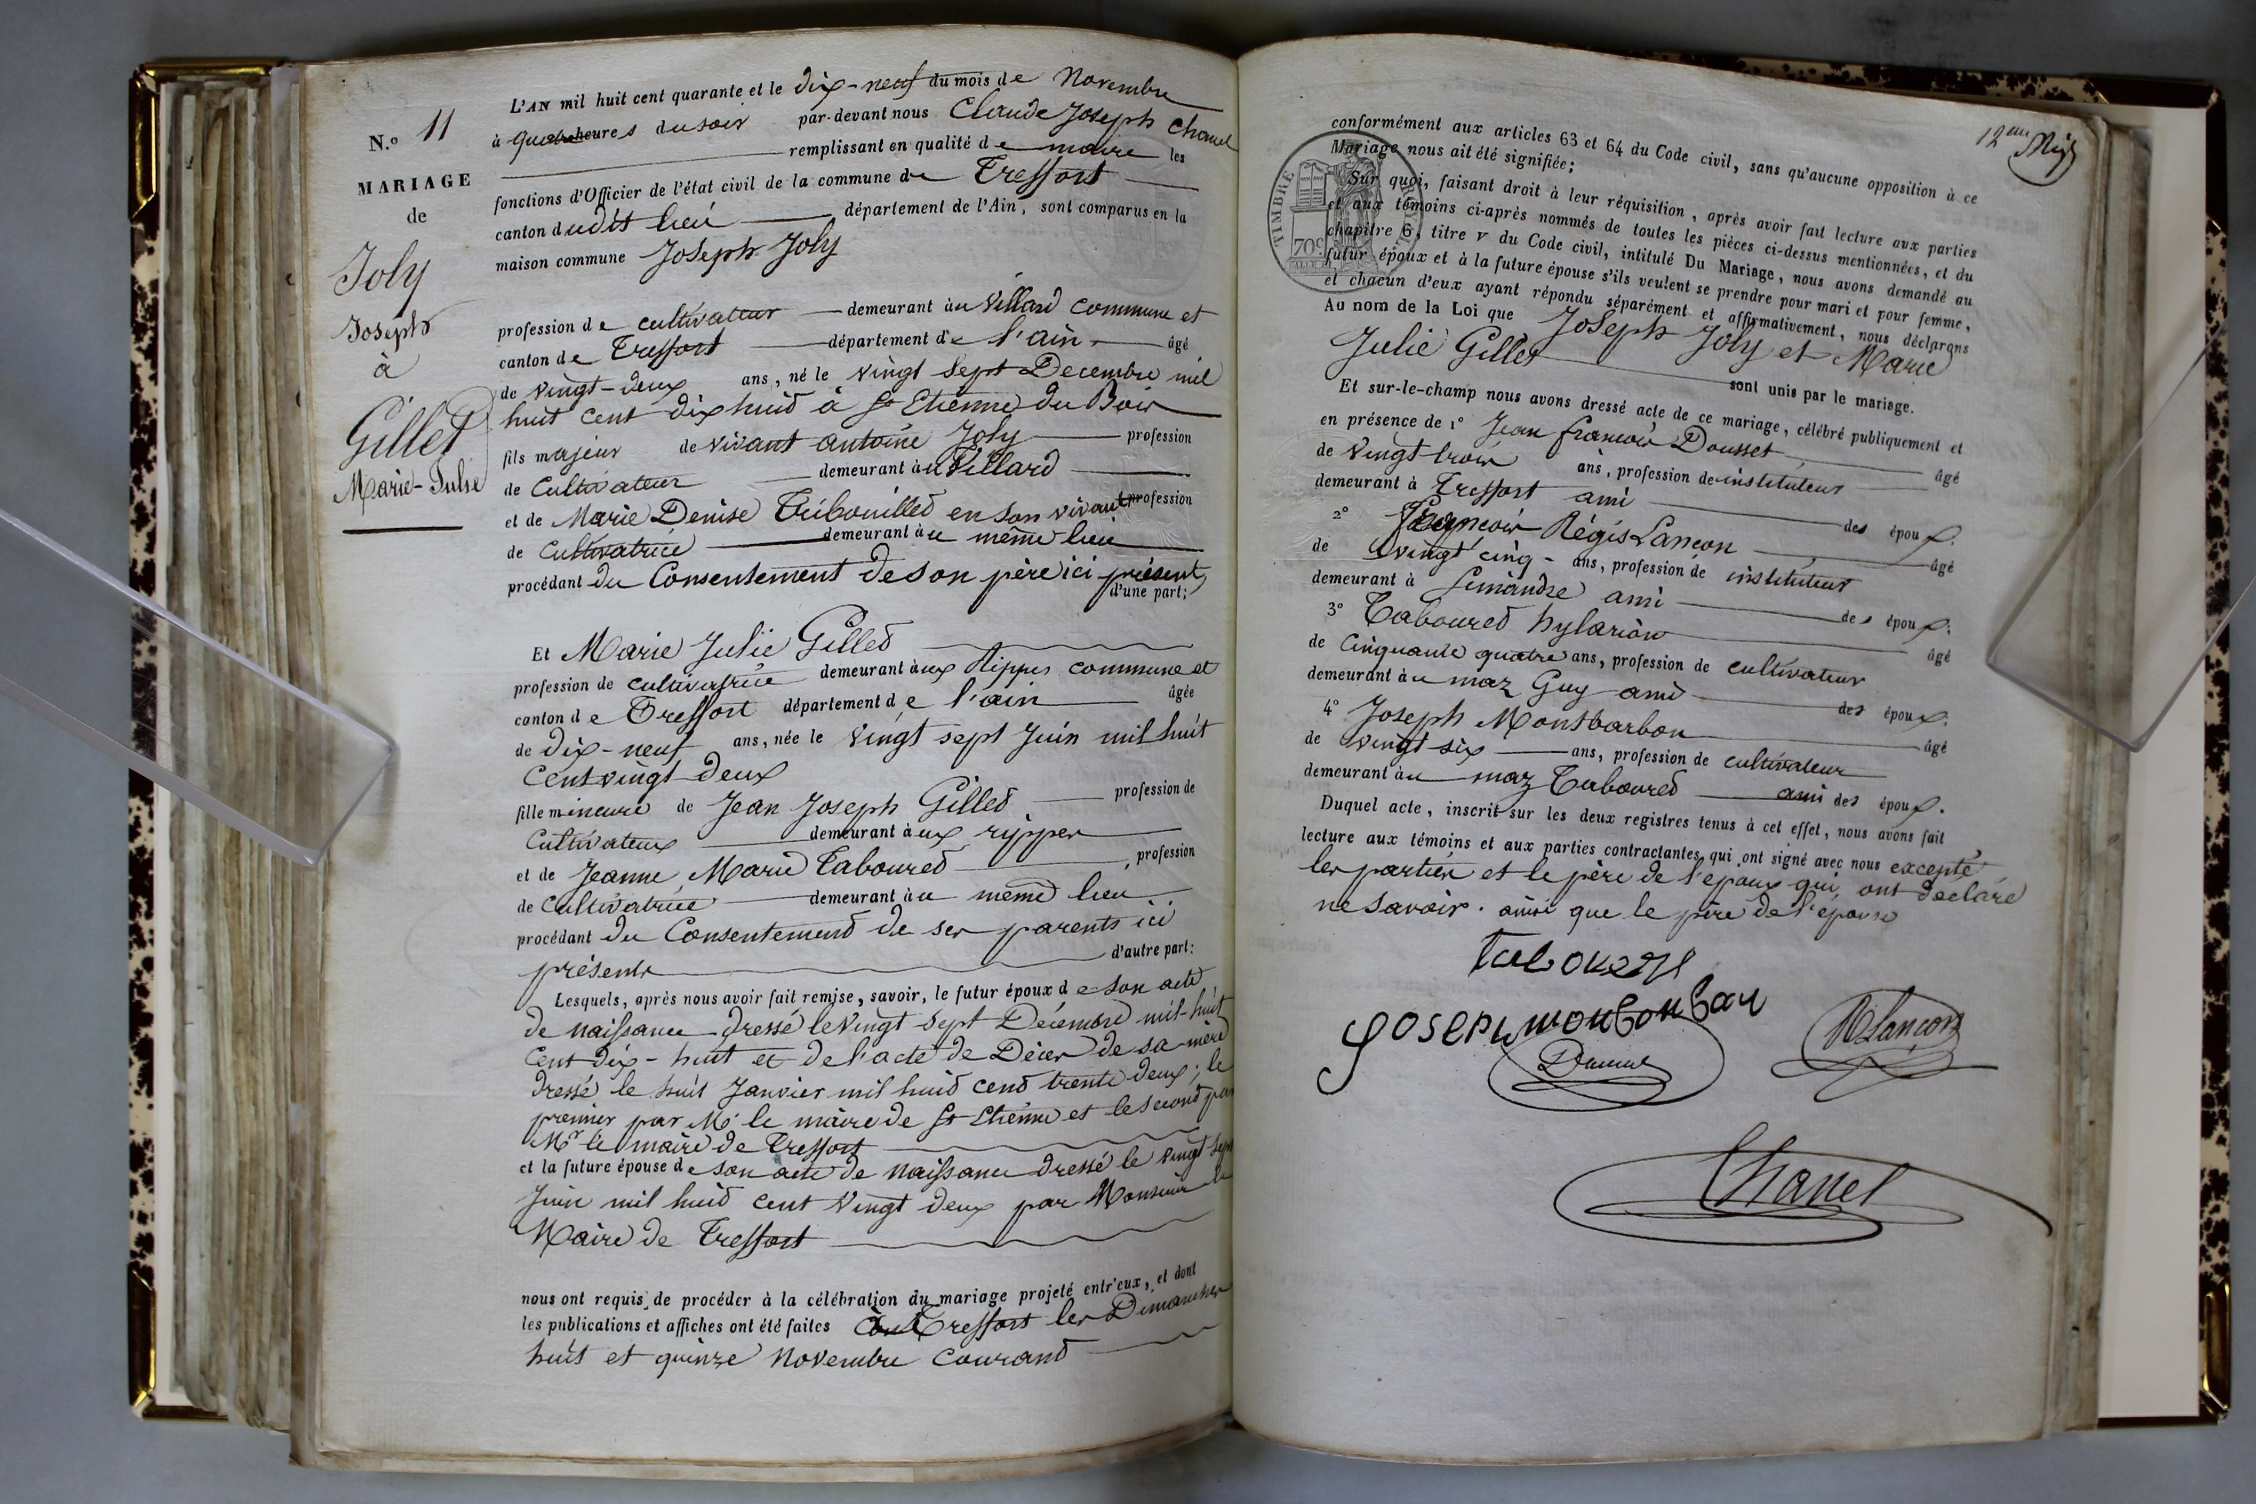 N.o 11
MARIAGE
de
Joly
Joseph
à
Gillet
Marie-Julie
L'AN mil huit cent quarante et le dix-neuf du mois de Novembre
à quatre heures du soir par-devant nous Claude Joseph Chanel
remplissant en qualité de maire les
fonctions d'Officier de l'état civil de la commune de Treffort
canton dudit lieu département de l'Ain, sont comparus en la
maison commune Joseph Joly
profession de cultivateur demeurant au Villard commune et
canton de Treffort département de l'ain âgé
de vingt-deux ans, né le vingt sept Decembre mil
huit cent dix huit à St Etienne du Bois
fils majeur de vivant antoine Joly profession
de Cultivateur demeurant au Villard
et de Marie Denise Tribouillet en son vivant profession
de Cultivatrice demeurant au même lieu
procédant du Consentement de son père ici présent
d'une part;
Et Marie Julie Gillet
profession de cultivatrice demeurant aux Rippes commune et
canton de Treffort département de l'ain âgée
de dix-neuf ans, née le vingt sept Juin mil huit
Cent vingt deux
fille mineure de Jean Joseph Gillet profession de
Cultivateur demeurant aux rippes
et de Jeanne Marie Tabouret profession
de Cultivatrice demeurant au même lieu
procédant du Consentement de ses parents ici
présents d'autre part:
Lesquels, après nous avoir fait remise, savoir, le futur époux de son acte
de naissance dressé le vingt sept Décembre mil-huit
Cent dix-huit et de l'acte de Décès de sa mère
dressé le huit Janvier mil huit cent trente deux; le
premier par Mr le maire de St Etienne et le second par
Mr le maire de Treffort
et la future épouse de son acte de naissance dressé le vingt sept
Juin mil huit cent vingt deux par Monsieur le
Maire de Treffort
nous ont requis de procéder à la célébration du mariage projeté entr'eux, et dont
les publications et affiches ont été faites à Treffort les Dimanches
huit et quinze novembre Courant
12em
conformément aux articles 63 et 64 du Code civil, sans qu'aucune opposition à ce
Mariage nous ait été signifiée;
Sur quoi, faisant droit à leur réquisition, après avoir fait lecture aux parties
et aux témoins ci-après nommés de toutes les pièces ci-dessus mentionnées, et du
chapitre 6, titre v du Code civil, intitulé Du Mariage, nous avons demandé au
futur époux et à la future épouse s'ils veulent se prendre pour mari et pour femme,
et chacun d'eux ayant répondu séparément et affirmativement, nous déclarons
Au nom de la Loi que Joseph Joly et Marie
Julie Gillet sont unis par le mariage.
TIMBRE
70c
Et sur-le-champ nous avons dressé acte de ce mariage, célébré publiquement et
en présence de 1° Jean françois Dousset âgé
de vingt trois ans, profession de instituteur
demeurant à Treffort ami des époux.
2° françois Régis Lançon âgé
de vingt cinq ans, profession de instituteur
demeurant à Simandre ami des époux;
3° Tabouret hylarion âgé
de Cinquante quatre ans, profession de cultivateur
demeurant au maz Guy ami des époux;
4° Joseph Montbarbon âgé
de vingt six ans, profession de cultivateur
demeurant au maz Tabouret ami des époux.
Duquel acte, inscrit sur les deux registres tenus à cet effet, nous avons fait
lecture aux témoins et aux parties contractantes qui ont signé avec nous excepté
les parties et le père de l'époux qui ont declaré
ne savoir. ainsi que le père de l'épouse
RLançon
Chanel